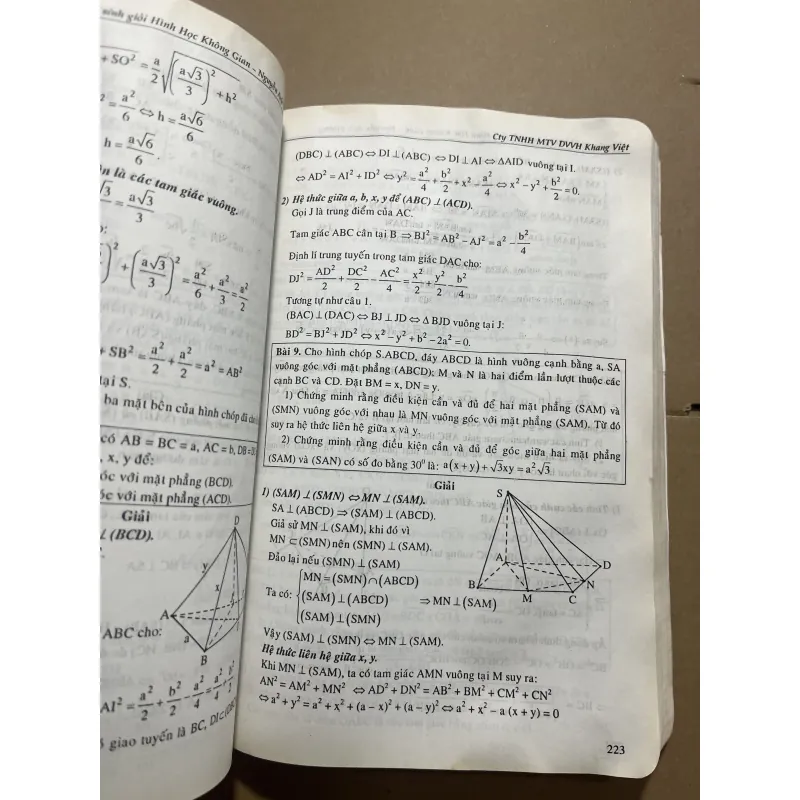 sinh giỏi Hình Học Không Gian – Nguyễn
+ SO² = a/2 √((a√3/3)² + h²)
² = a²/6 ⇔ h = a√6/6
h = a√6/6.
là các tam giác vuông.
√3/3 = a√3/3
² + (a√3/3)² = a²/6 + a²/3 = a²/2
+ SB² = a²/2 + a²/2 = a² = AB²
tại S.
ba mặt bên của hình chóp đã
có AB = BC = a, AC = b, DB =
, x, y để:
óc với mặt phẳng (BCD).
óc với mặt phẳng (ACD).
Giải
⊥ (BCD).
D
y
x
A
a
B
ABC cho:
AI² = a²/2 + b²/2 - a²/4 = a²/4 + b²/2
giao tuyến là BC, DI ⊂
Cty TNHH MTV DVVH Khang Việt
(DBC) ⊥ (ABC) ⇔ DI ⊥ (ABC) ⇔ DI ⊥ AI ⇔ ΔAID vuông tại I.
⇔ AD² = AI² + ID² ⇔ y² = a²/4 + b²/2 + x² - a²/4 ⇔ x² - y² + b²/2 = 0.
2) Hệ thức giữa a, b, x, y để (ABC) ⊥ (ACD).
Gọi J là trung điểm của AC.
Tam giác ABC cân tại B ⇒ BJ² = AB² - AJ² = a² - b²/4
Định lí trung tuyến trong tam giác DAC cho:
DJ² = AD²/2 + DC²/2 - AC²/4 = x²/2 + y²/2 - b²/4
Tương tự như câu 1.
(BAC) ⊥ (DAC) ⇔ BJ ⊥ JD ⇔ Δ BJD vuông tại J:
BD² = BJ² + JD² ⇔ x² - y² + b² - 2a² = 0.
Bài 9. Cho hình chóp S.ABCD, đáy ABCD là hình vuông cạnh bằng a, SA
vuông góc với mặt phẳng (ABCD); M và N là hai điểm lần lượt thuộc các
cạnh BC và CD. Đặt BM = x, DN = y.
1) Chứng minh rằng điều kiện cần và đủ để hai mặt phẳng (SAM) và
(SMN) vuông góc với nhau là MN vuông góc với mặt phẳng (SAM). Từ đó
suy ra hệ thức liên hệ giữa x và y.
2) Chứng minh rằng điều kiện cần và đủ để góc giữa hai mặt phẳng
(SAM) và (SAN) có số đo bằng 30⁰ là: a(x + y) + √3xy = a²√3
Giải
1) (SAM) ⊥ (SMN) ⇔ MN ⊥ (SAM).
SA ⊥ (ABCD) ⇒ (SAM) ⊥ (ABCD).
Giả sử MN ⊥ (SAM), khi đó vì
MN ⊂ (SMN) nên (SMN) ⊥ (SAM).
Đảo lại nếu (SMN) ⊥ (SAM)
MN = (SMN) ∩ (ABCD)
Ta có: (SAM) ⊥ (ABCD) ⇒ MN ⊥ (SAM)
(SAM) ⊥ (SMN)
S
A
D
B
N
M
C
Vậy (SAM) ⊥ (SMN) ⇔ MN ⊥ (SAM).
Hệ thức liên hệ giữa x, y.
Khi MN ⊥ (SAM), ta có tam giác AMN vuông tại M suy ra:
AN² = AM² + MN² ⇔ AD² + DN² = AB² + BM² + CM² + CN²
⇔ a² + y² = a² + x² + (a - x)² + (a - y)² ⇔ a² + x² - a (x + y) = 0
223